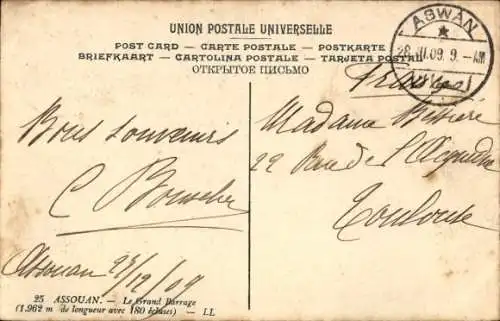 UNION POSTALE UNIVERSELLE
POST CARD — CARTE POSTALE — POSTKARTE
BRIEFKAART — CARTOLINA POSTALE — TARJETA POSTAL
ОТКРЫТОЕ ПИСЬМО
ASWAN
28 III.09. 9.-AM
Bons souvenirs
C
Assouan 28/12/09
Madame
22 Rue de l'
Toulouse
25 ASSOUAN. — Le Grand Barrage
(1.962 m de longueur avec 180 écluses) — LL